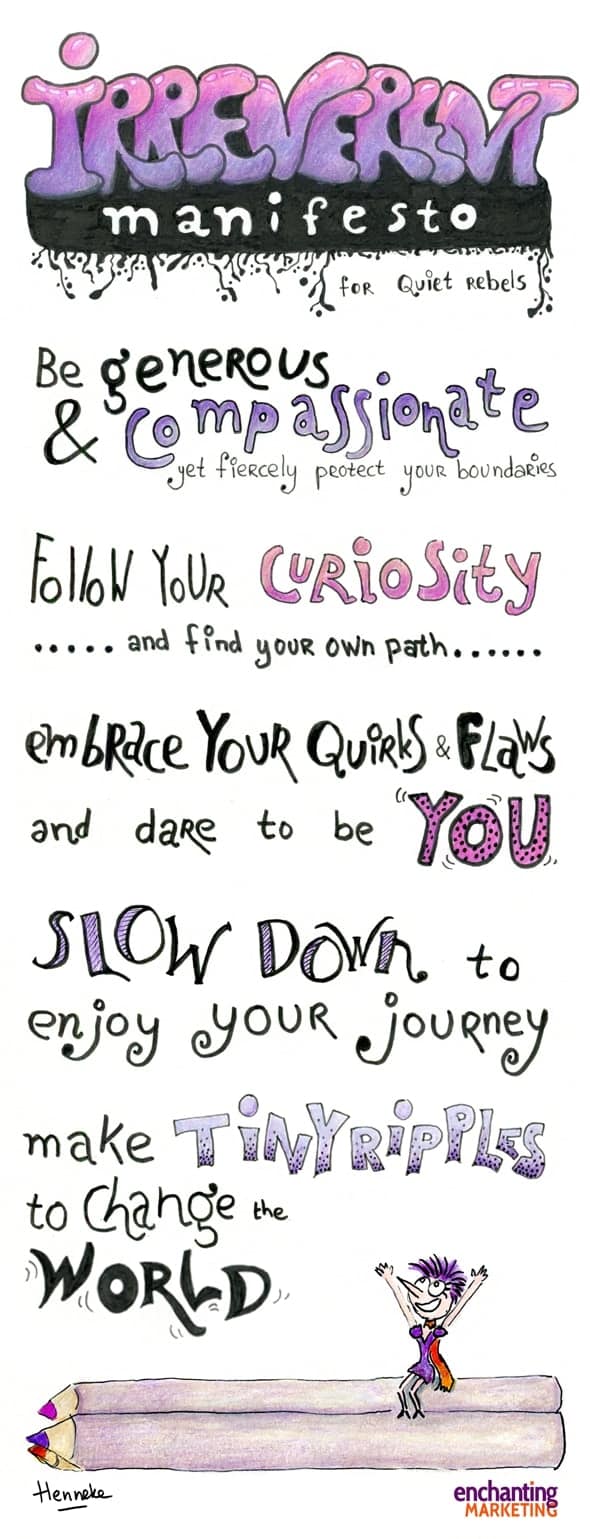 iRREVERENT
manifesto
for Quiet Rebels
Be generous
& compassionate
yet fiercely protect your boundaries
Follow Your Curiosity
..... and find your own path......
embrace Your Quirks & Flaws
and dare to be YOU
SLOW DOWN to
enjoy your journey
make TiNY RiPPLES
to Change the
WORLD
Henneke
enchanting
MARKETING